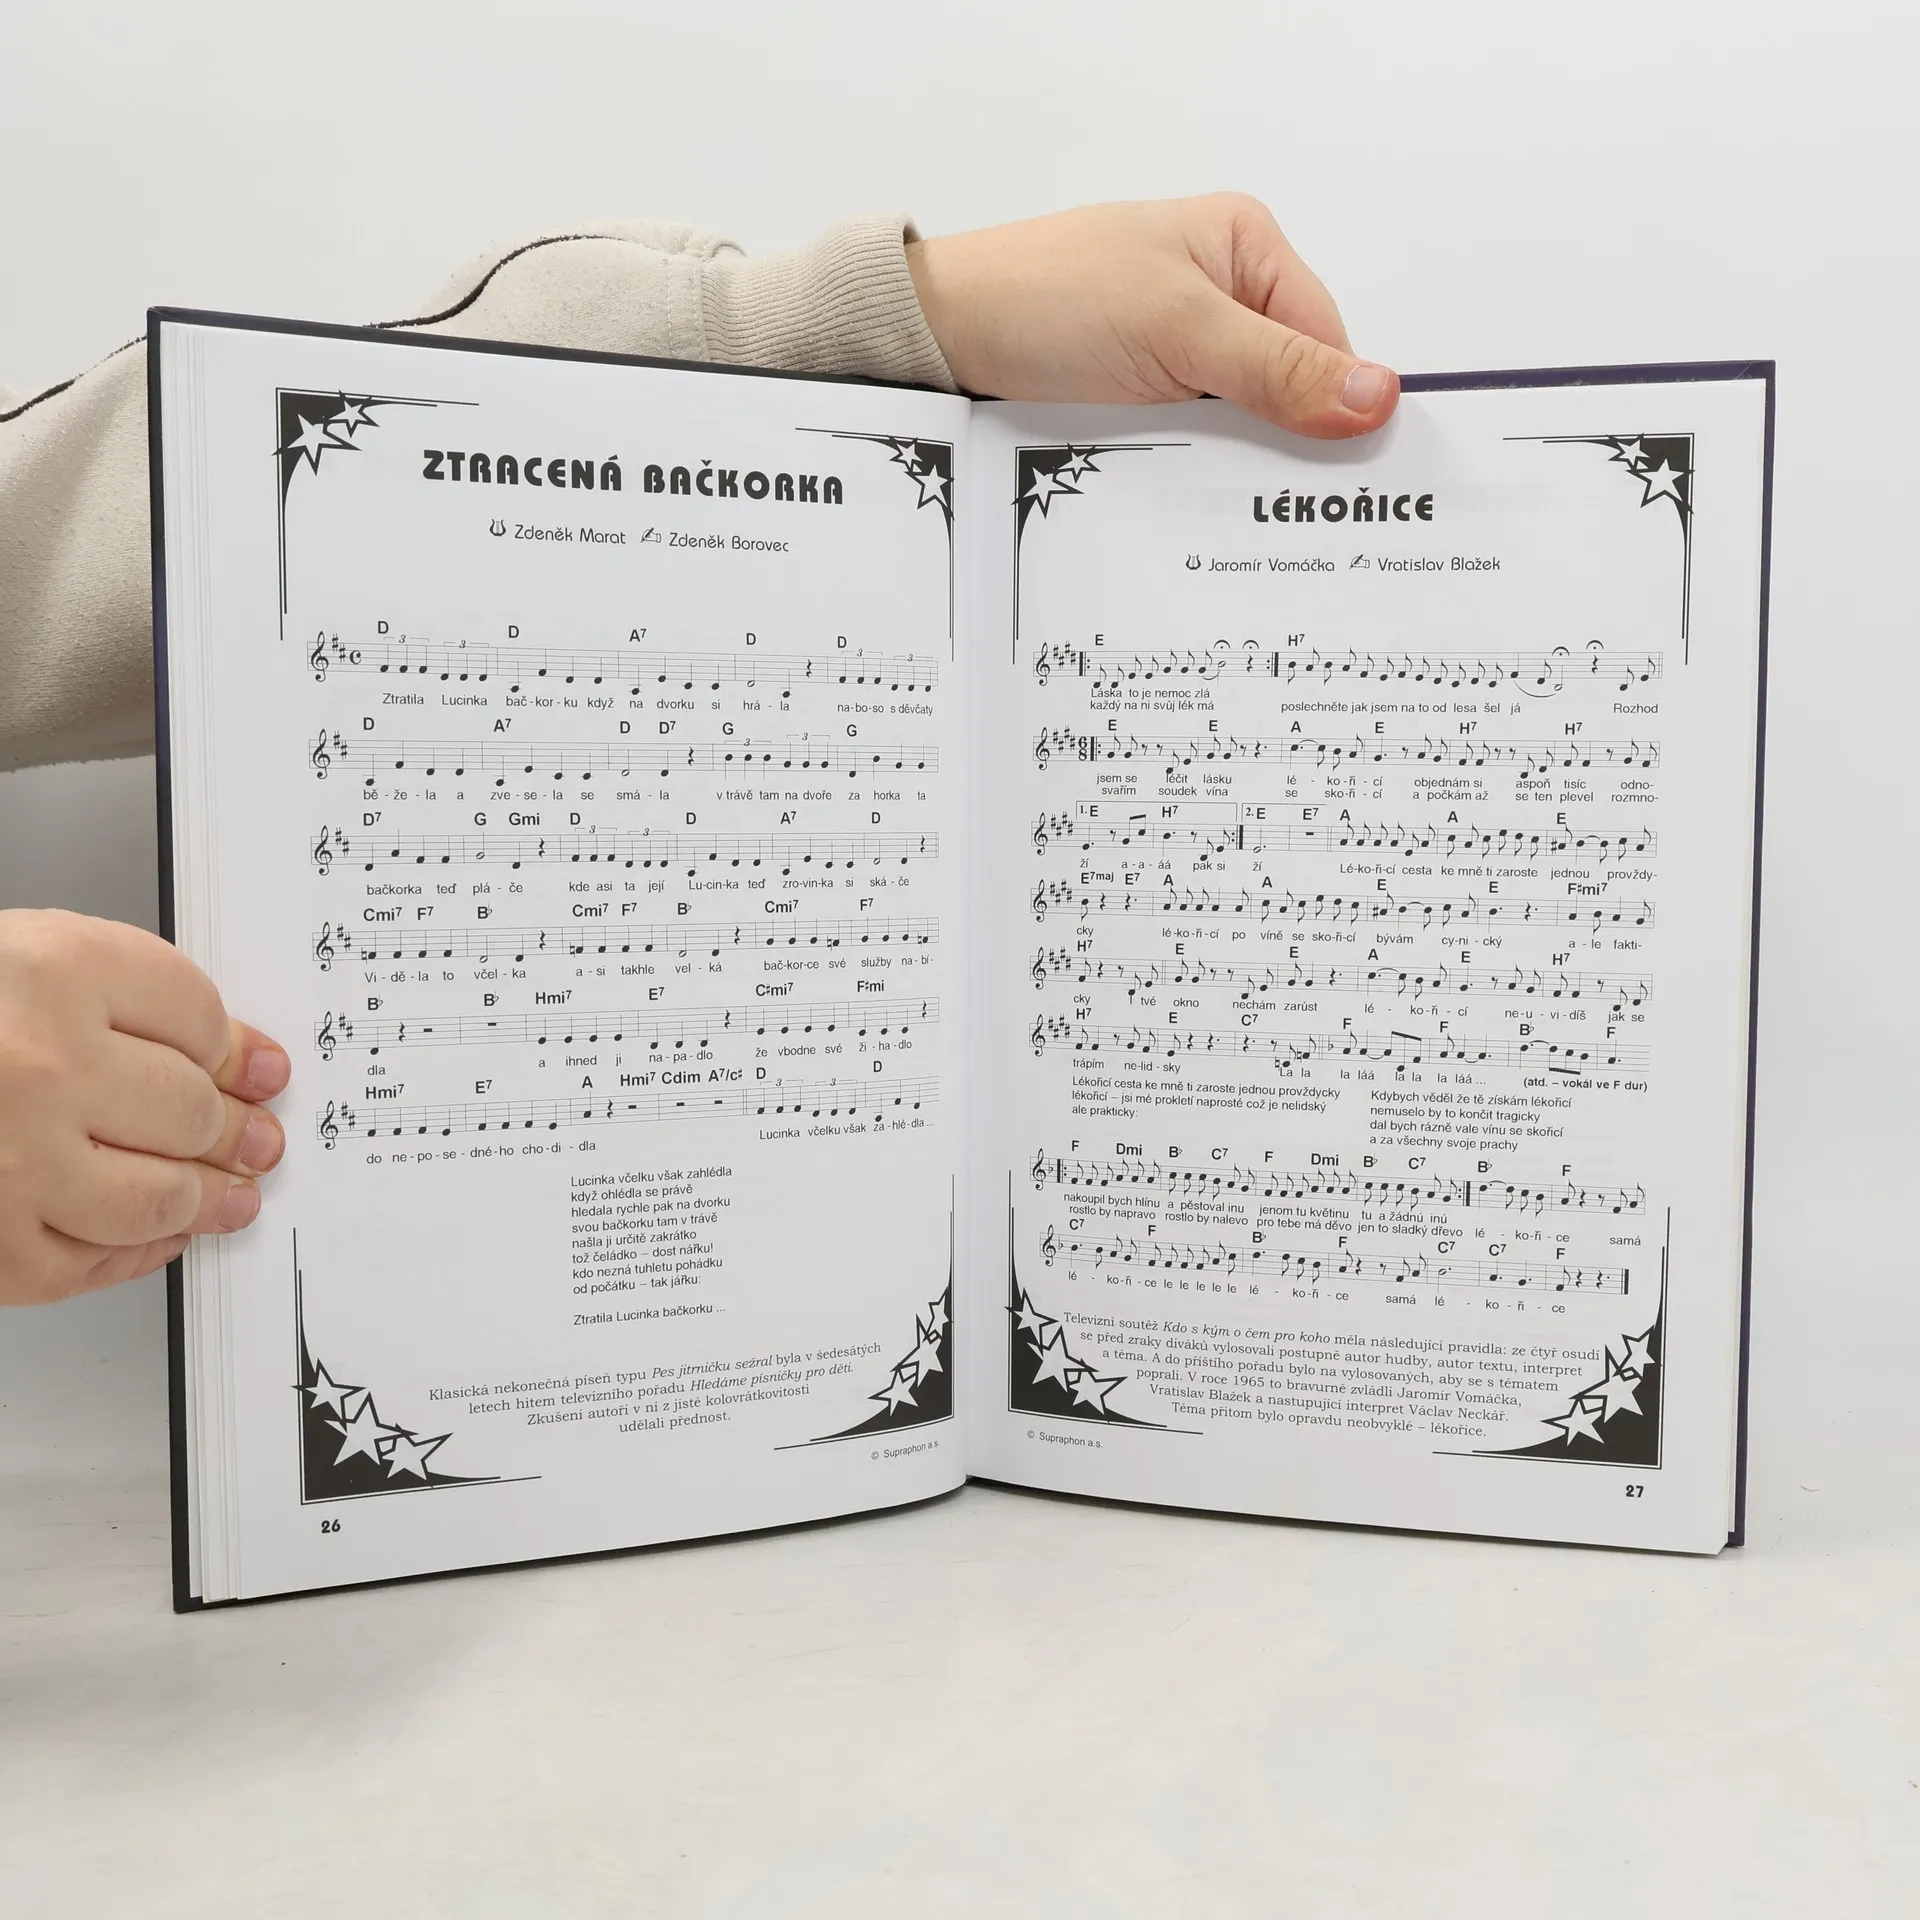 ZTRACENÁ BAČKORKA
Zdeněk Marat Zdeněk Borovec
D D A7 D D
3 3 3 3
Ztratila Lucinka bač-kor-ku když na dvorku si hrá - la na-bo-so s děvčaty
D A7 D D7 G G
3 3
bě - že - la a zve - se - la se smá - la v trávě tam na dvoře za horka ta
D7 G Gmi D D A7 D
3 3
bačkorka teď plá - če kde asi ta její Lu-cin-ka teď zro-vin-ka si ská - če
Cmi7 F7 B♭ Cmi7 F7 B♭ Cmi7 F7
Vi - dě - la to včel - ka a - si takhle vel - ká bač-kor-ce své služby na-bí-
B♭ B♭ Hmi7 E7 C♯mi7 F♯mi
dla a ihned ji na-pa-dlo že vbodne své ži-ha-dlo
Hmi7 E7 A Hmi7 Cdim A7/c♯ D D
3 3
do ne - po - se - dné-ho cho-di - dla Lucinka včelku však za-hlé-dla ...
Lucinka včelku však zahlédla
když ohlédla se právě
hledala rychle pak na dvorku
svou bačkorku tam v trávě
našla ji určitě zakrátko
tož čeládko – dost nářku!
kdo nezná tuhletu pohádku
od počátku – tak jářku:
Ztratila Lucinka bačkorku ...
Klasická nekonečná píseň typu Pes jitrničku sežral byla v šedesátých
letech hitem televizního pořadu Hledáme písničky pro děti.
Zkušení autoři v ní z jisté kolovrátkovitosti
udělali přednost.
© Supraphon a.s.
26
LÉKOŘICE
Jaromír Vomáčka Vratislav Blažek
E H7
Láska to je nemoc zlá
každý na ni svůj lék má poslechněte jak jsem na to od lesa šel já Rozhod
E E A E H7 H7
6
8
jsem se léčit lásku lé - ko-ři - cí objednám si aspoň tisíc odno-
svařím soudek vína se sko-ři - cí a počkám až se ten plevel rozmno-
1. E H7 2. E E7 A A E
ží a-a-áá pak si ží Lé-ko-ři-cí cesta ke mně ti zaroste jednou provždy-
E7maj E7 A A E E F♯mi7
cky lé-ko-ři-cí po víně se sko-ři-cí bývám cy-ni-cký a - le fakti-
H7 E E A E H7
cky I tvé okno nechám zarůst lé - ko-ři - cí ne-u-vi-díš jak se
H7 E C7 F F B♭ F
trápím ne-lid-sky La la la láá la la la láá ... (atd. – vokál ve F dur)
Lékořicí cesta ke mně ti zaroste jednou provždycky
lékořicí – jsi mé prokletí naprosté což je nelidský
ale prakticky:
Kdybych věděl že tě získám lékořicí
nemuselo by to končit tragicky
dal bych rázně vale vínu se skořicí
a za všechny svoje prachy
F Dmi B♭ C7 F Dmi B♭ C7 B♭ F
nakoupil bych hlínu a pěstoval inu jenom tu květinu tu a žádnú inú
rostlo by napravo rostlo by nalevo pro tebe má děvo jen to sladký dřevo lé - ko-ři - ce samá
C7 F B♭ F C7 C7 F
lé - ko-ři - ce le le le le le lé - ko-ři - ce samá lé - ko - ři - ce
Televizní soutěž Kdo s kým o čem pro koho měla následující pravidla: ze čtyř osudí
se před zraky diváků vylosovali postupně autor hudby, autor textu, interpret
a téma. A do příštího pořadu bylo na vylosovaných, aby se s tématem
poprali. V roce 1965 to bravurně zvládli Jaromír Vomáčka,
Vratislav Blažek a nastupující interpret Václav Neckář.
Téma přitom bylo opravdu neobvyklé – lékořice.
© Supraphon a.s.
27